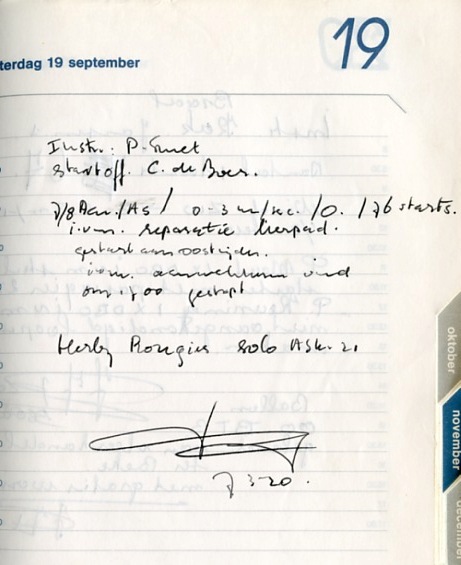 terdag 19 september
19
Instr.: P. Smet
Startoff. C. de Boer.
7/8 Aan./As / 0.3 m/sec. /0. / 76 starts.
i.v.m. reparatie lierpad.
gestart aan oostzijde.
i.v.m. wind
om 17.00 gestopt
Herby solo ASK. 21
oktober
november
december